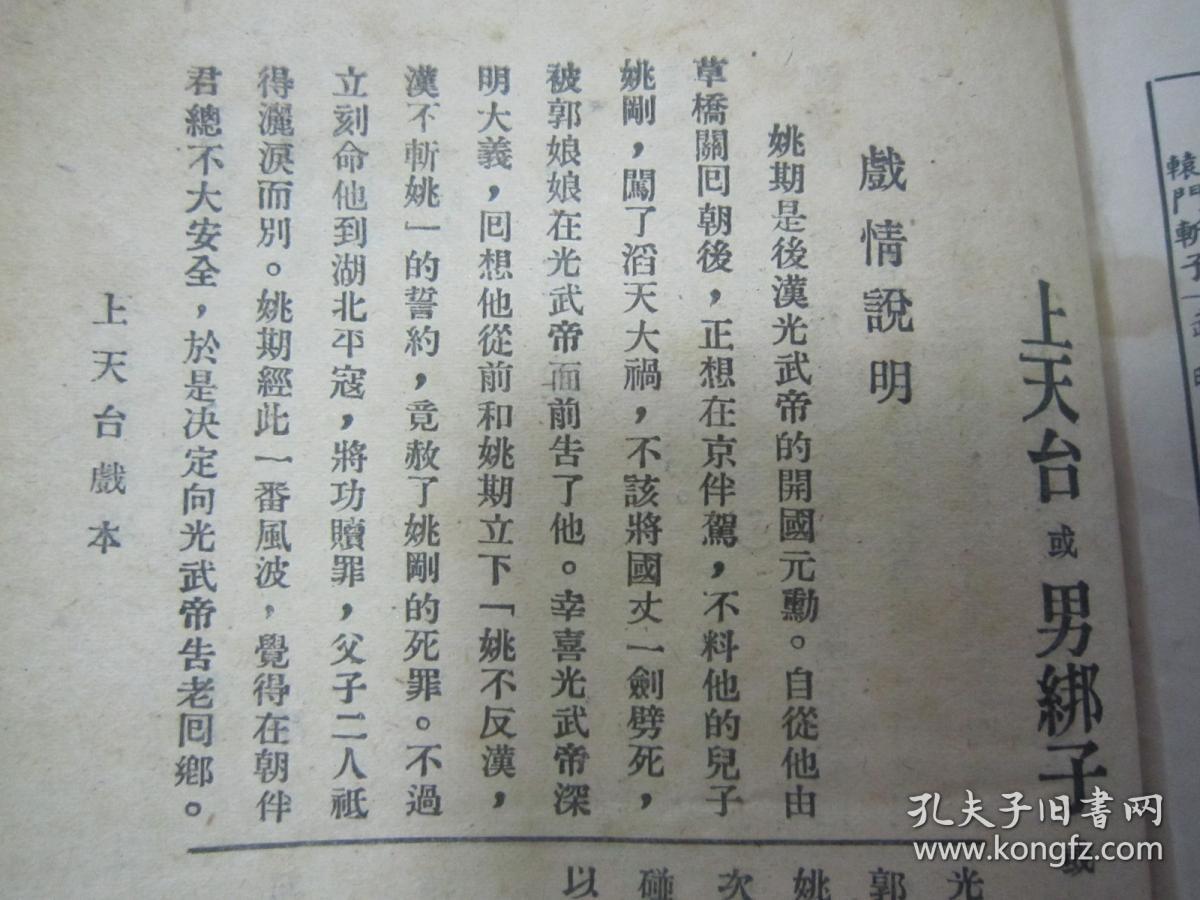 上天台 或 男綁子
戲情說明
姚期是後漢光武帝的開國元勳。自從他由
草橋關囘朝後，正想在京伴駕，不料他的兒子
姚剛，闖了滔天大禍，不該將國丈一劍劈死，
被郭娘娘在光武帝面前告了他。幸喜光武帝深
明大義，囘想他從前和姚期立下「姚不反漢，
漢不斬姚」的誓約，竟赦了姚剛的死罪。不過
立刻命他到湖北平寇，將功贖罪，父子二人祗
得灑淚而別。姚期經此一番風波，覺得在朝伴
君總不大安全，於是決定向光武帝告老囘鄉。
上天台戲本
光
郭
姚
次
碰
以
轅門斬子
孔夫子旧书网
www.kongfz.com